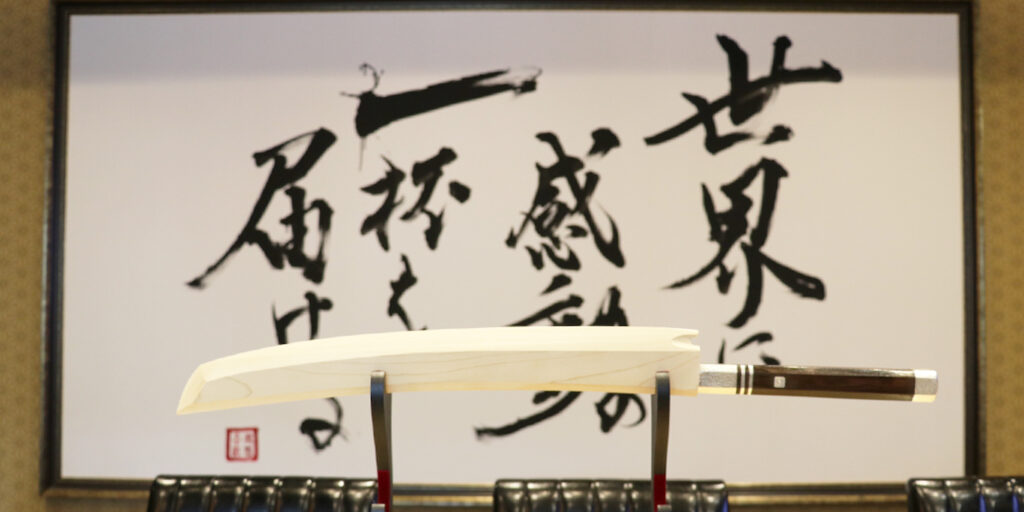 世界に
感動の
一杯を
届ける